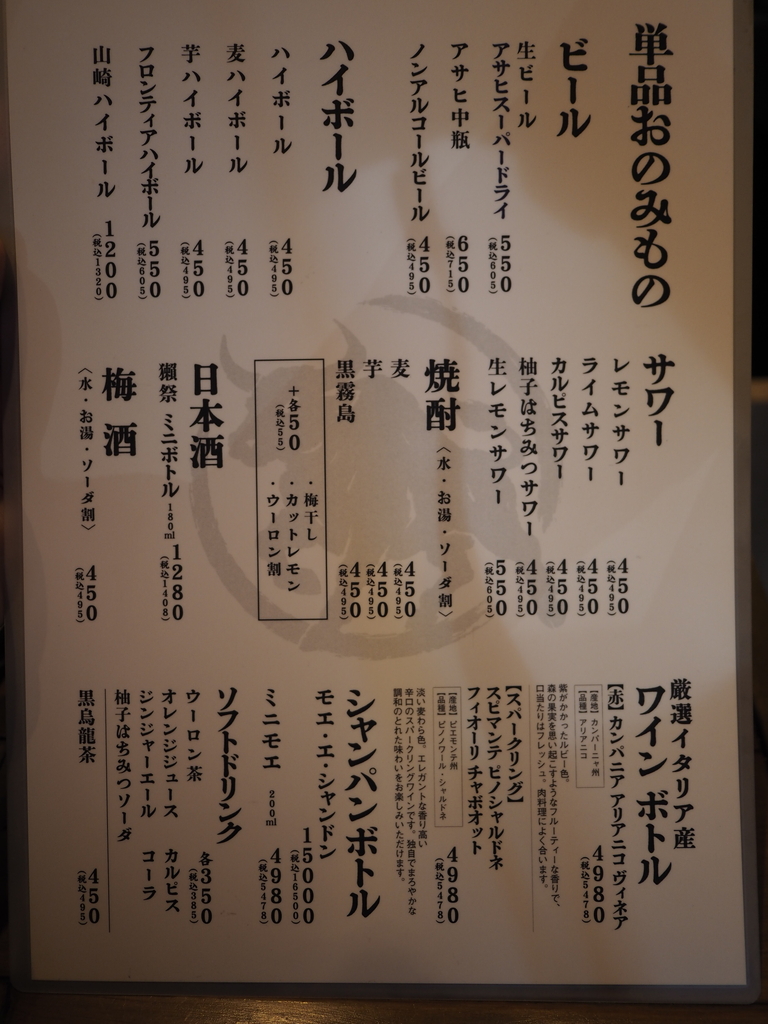 単品おのみもの
ビール
生ビール
アサヒスーパードライ 550
(税込605)
アサヒ中瓶 650
(税込715)
ノンアルコールビール 450
(税込495)
ハイボール
ハイボール 450
(税込495)
麦ハイボール 450
(税込495)
芋ハイボール 450
(税込495)
フロンティアハイボール 550
(税込605)
山崎ハイボール 1200
(税込1320)
サワー
レモンサワー 450
(税込495)
ライムサワー 450
(税込495)
カルピスサワー 450
(税込495)
柚子はちみつサワー 450
(税込495)
生レモンサワー 550
(税込605)
焼酎〈水・お湯・ソーダ割〉
麦 450
(税込495)
芋 450
(税込495)
黒霧島 450
(税込495)
+各50
(税込55)
・梅干し
・カットレモン
・ウーロン割
日本酒
獺祭 ミニボトル 180ml 1280
(税込1408)
梅酒
〈水・お湯・ソーダ割〉 450
(税込495)
厳選イタリア産
ワインボトル
【赤】カンパニア アリアニコ ヴィネア 4980
(税込5478)
【産地】カンパーニャ州
【品種】アリアニコ
紫がかかったルビー色。
森の果実を思い起こすようなフルーティーな香りで、
口当たりはフレッシュ。肉料理によく合います。
【スパークリング】
スピマンテ ピノシャルドネ
フィオーリ チャボオット 4980
(税込5478)
【産地】ピエモンテ州
【品種】ピノノワール・シャルドネ
淡い麦わら色。エレガントな香り高い
辛口のスパークリングワインです。独自でまろやかな
調和のとれた味わいをお楽しみいただけます。
シャンパンボトル
モエ・エ・シャンドン 15000
(税込16500)
ミニモエ 200ml 4980
(税込5478)
ソフトドリンク 各350
(税込385)
ウーロン茶
オレンジジュース カルピス
ジンジャーエール コーラ
柚子はちみつソーダ
黒烏龍茶 450
(税込495)